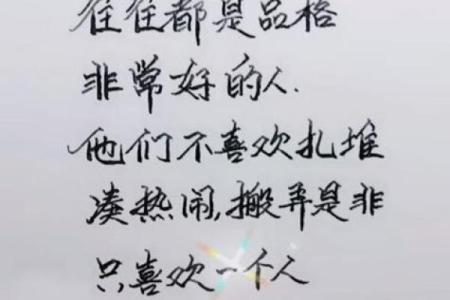 往往都是品格
非常好的人.
他们不喜欢扎堆
凑热闹,搬弄是非
只喜欢一个人